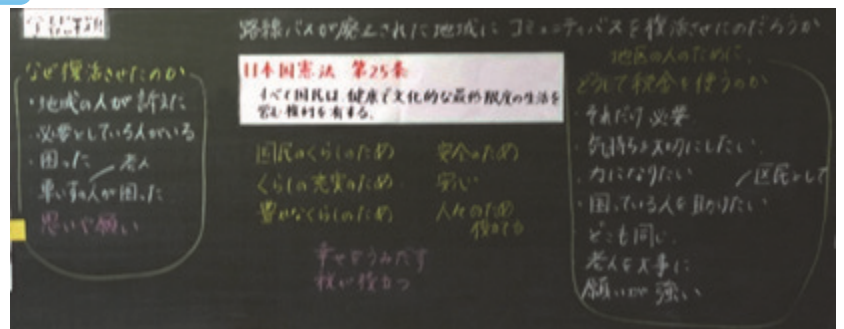 学習課題
路線バスが廃止された地域にコミュニティバスを復活させたのだろうか
なぜ復活させたのか
・地域の人が訴えた
・必要としている人がいる
・困った 老人
車いすの人が困った
思いや願い
日本国憲法 第25条
すべて国民は、健康で文化的な最低限度の生活を
営む権利を有する。
国民のくらしのため
くらしの充実のため
豊かなくらしのため
安全のため
安心
人々のため
役立てる
幸せをうみだす
税が役立つ
地区の人のために、
どうして税金を使うのか
・それだけ必要
・気持ちを大切にしたい
・力になりたい
区民として
・困っている人を助けたい
どこも同じ
老人を大事に
願いが強い